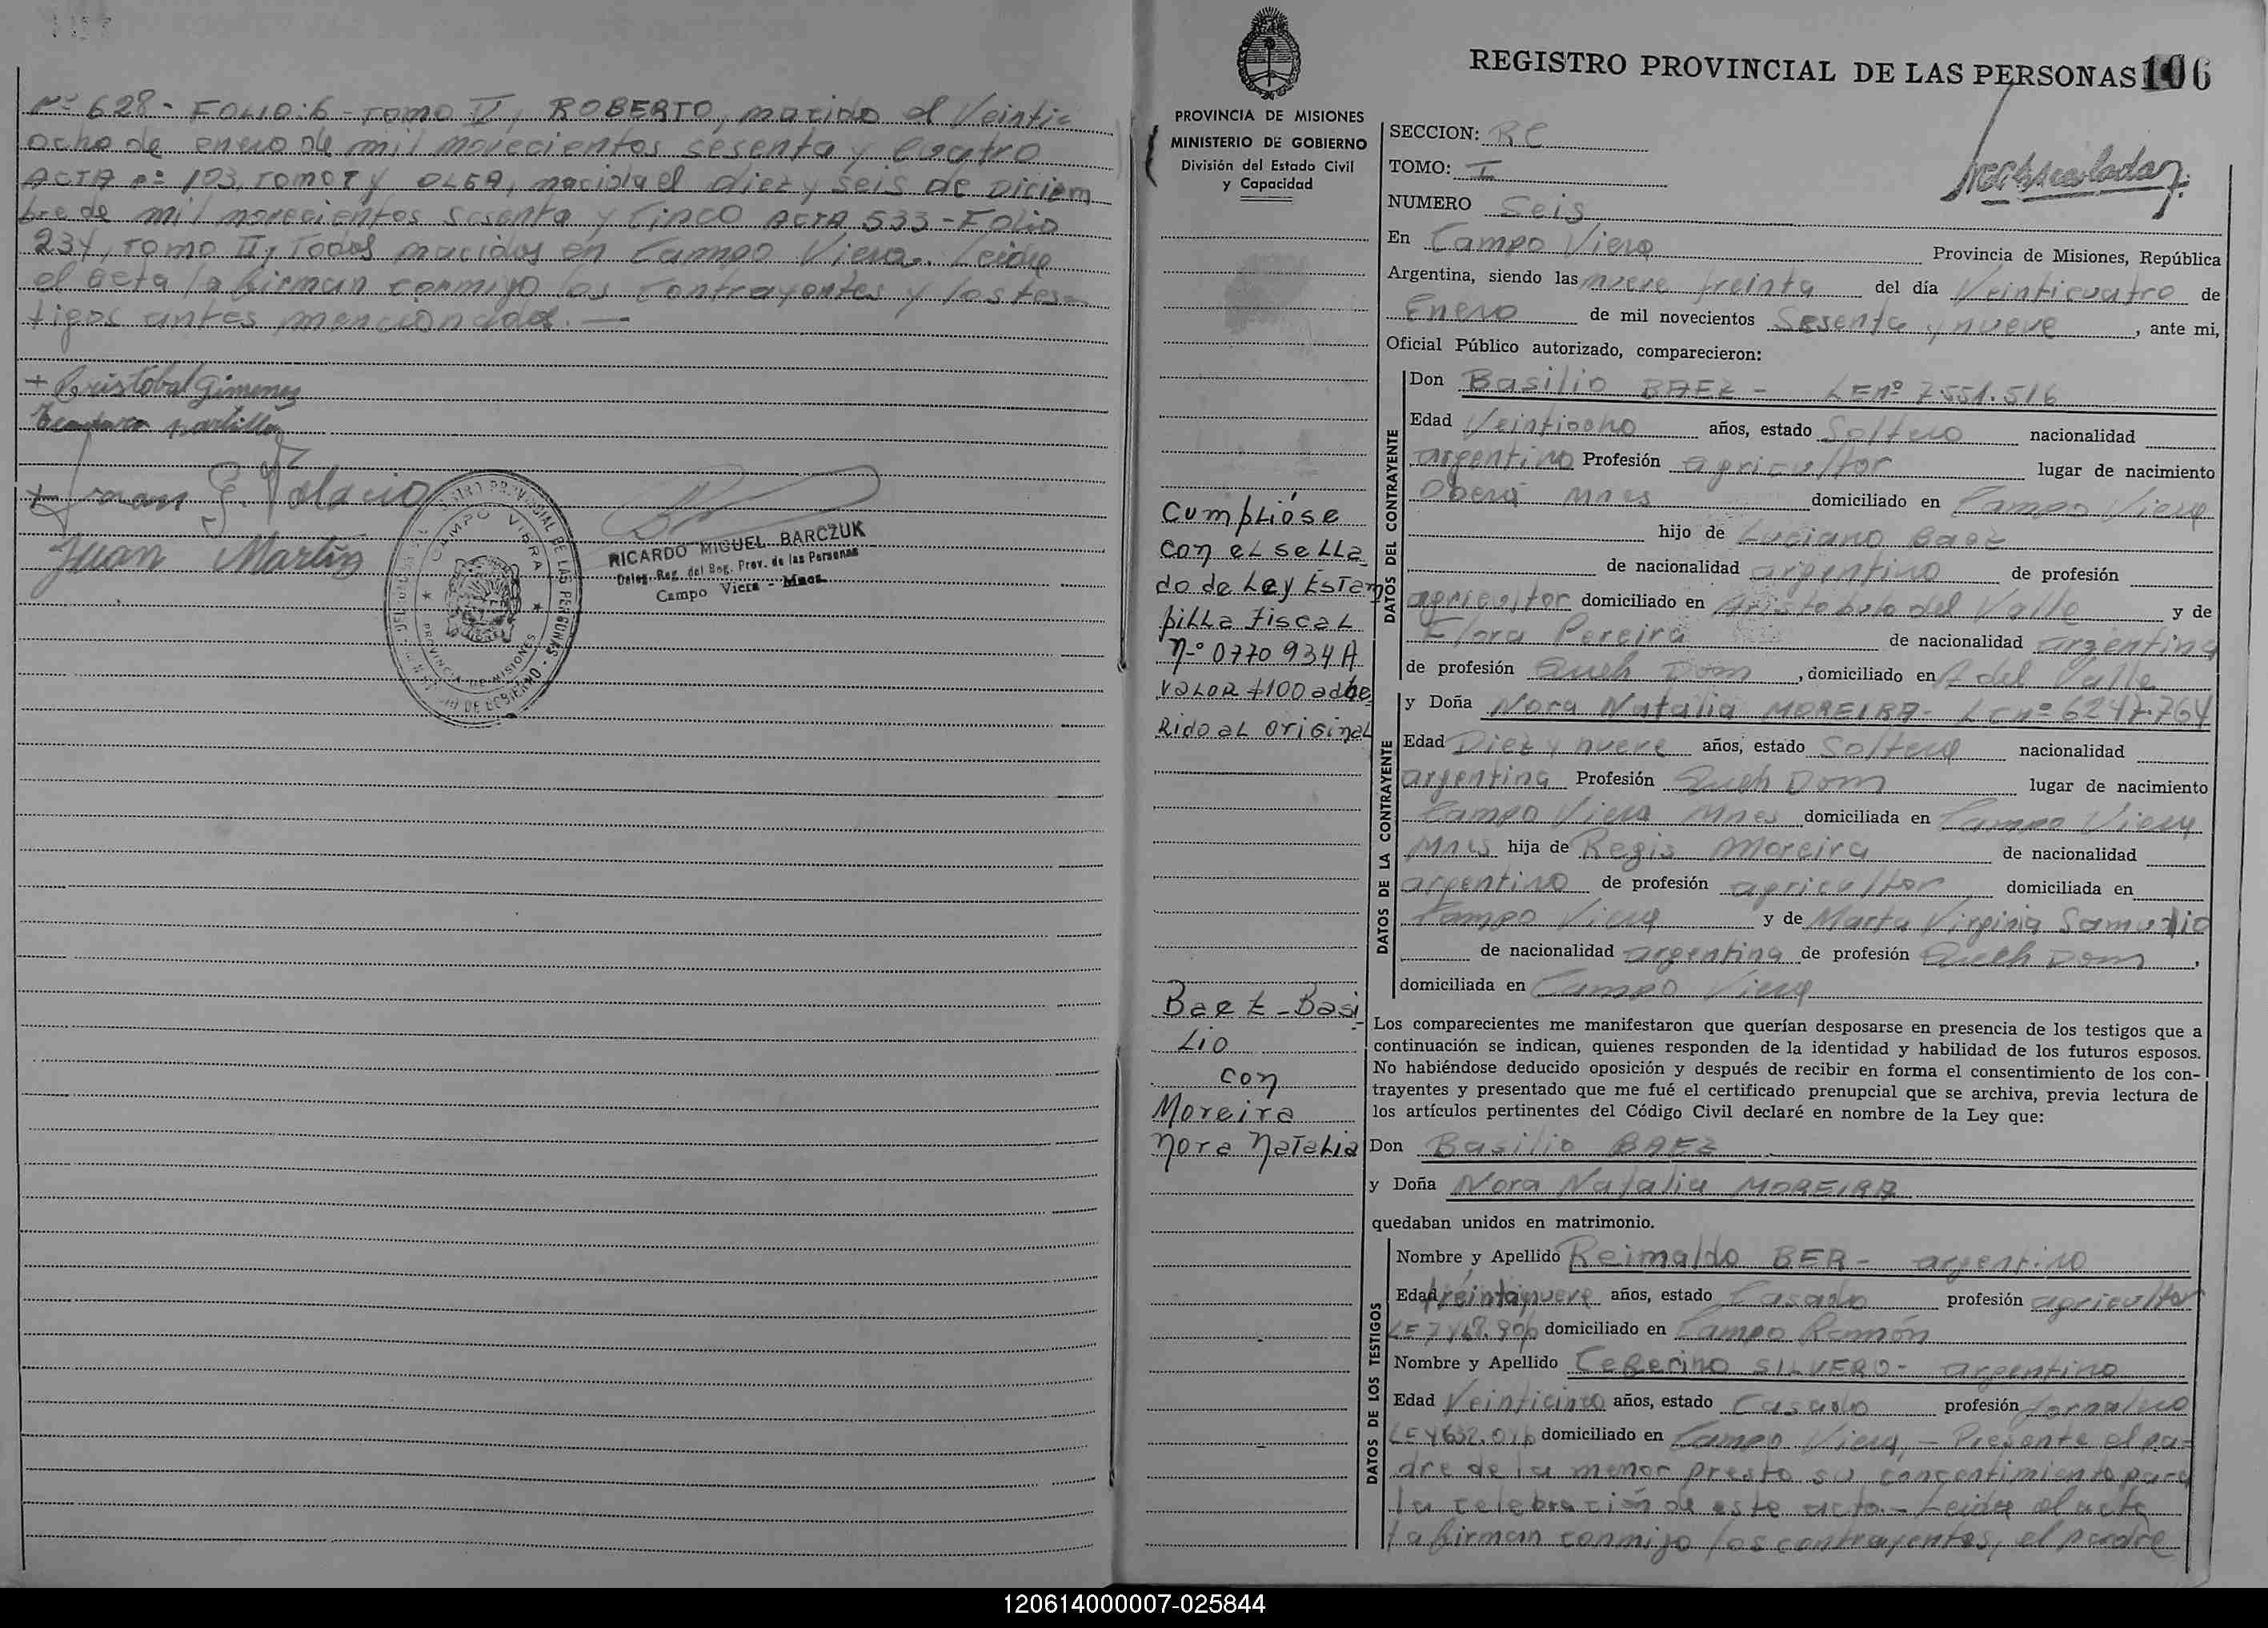 nº 628 - FOLIO: 6 - Tomo II, ROBERTO, nacido el Veinti=
ocho de enero de mil novecientos sesenta y cuatro
ACTA nº 103, Tomo I y OLGA, nacida el diez y seis de Diciem
bre de mil novecientos sesenta y cinco ACTA 533 - Folio
234, Tomo II, Todos nacidos en Campo Viera. Leida
el acta la firman conmigo los contrayentes y los tes=
tigos antes mencionados. —
+ Cristobal Gimenez
Juan G. Palacio
Juan Martin
CAMPO VIERA
PROVINCIA DE MISIONES
RICARDO MIGUEL BARCZUK
Deleg. Reg. del Reg. Prov. de las Personas
Campo Viera - Mnes.
REGISTRO PROVINCIAL DE LAS PERSONAS 106
PROVINCIA DE MISIONES
MINISTERIO DE GOBIERNO
División del Estado Civil
y Capacidad
SECCION: RC
TOMO: I
NUMERO Seis
En Campo Viera Provincia de Misiones, República
Argentina, siendo las nueve treinta del día Veinticuatro de
Enero de mil novecientos Sesenta y nueve, ante mi,
Oficial Público autorizado, comparecieron:
DATOS DEL CONTRAYENTE
Don Basilio BAEZ - LE nº 7.551.516
Edad Veintiocho años, estado Soltero nacionalidad
argentino Profesión agricultor lugar de nacimiento
Oberá Mnes domiciliado en Campo Viera
hijo de Luciano Baez
de nacionalidad argentino de profesión
agricultor domiciliado en Aristobulo del Valle y de
Flora Pereira de nacionalidad argentina
de profesión Queh Dom, domiciliado en A del Valle
DATOS DE LA CONTRAYENTE
y Doña Nora Natalia MOREIRA - LC nº 6247.764
Edad Diez y nueve años, estado Soltera nacionalidad
argentina Profesión Queh Dom lugar de nacimiento
Campo Viera Mnes domiciliada en Campo Viera
Mnes hija de Regis Moreira de nacionalidad
argentino de profesión agricultor domiciliada en
Campo Viera y de Marta Virginia Samudio
de nacionalidad argentina de profesión Queh Dom,
domiciliada en Campo Viera
Los comparecientes me manifestaron que querían desposarse en presencia de los testigos que a
continuación se indican, quienes responden de la identidad y habilidad de los futuros esposos.
No habiéndose deducido oposición y después de recibir en forma el consentimiento de los con-
trayentes y presentado que me fué el certificado prenupcial que se archiva, previa lectura de
los artículos pertinentes del Código Civil declaré en nombre de la Ley que:
Don Basilio BAEZ
y Doña Nora Natalia MOREIRA
quedaban unidos en matrimonio.
DATOS DE LOS TESTIGOS
Nombre y Apellido Reimaldo BER - argentino
Edad treintaynueve años, estado Casado profesión agricultor
domiciliado en Campo Ramón
Nombre y Apellido Ceferino SILVERO - argentino
Edad Veinticinco años, estado Casado profesión Jornalero
domiciliado en Campo Viera, - Presente el pa=
dre de la menor presto su concentimiento para
la celebración de este acto. - Leida el acta
la firman conmigo los contrayentes, el padre
Cumplióse
con el sella
do de Ley Estam
pilla fiscal
n-º 0770 934 A
valor $100 adhe
rido al original
Baez - Basi
lio
con
Moreira
Nora Natalia
120614000007-025844